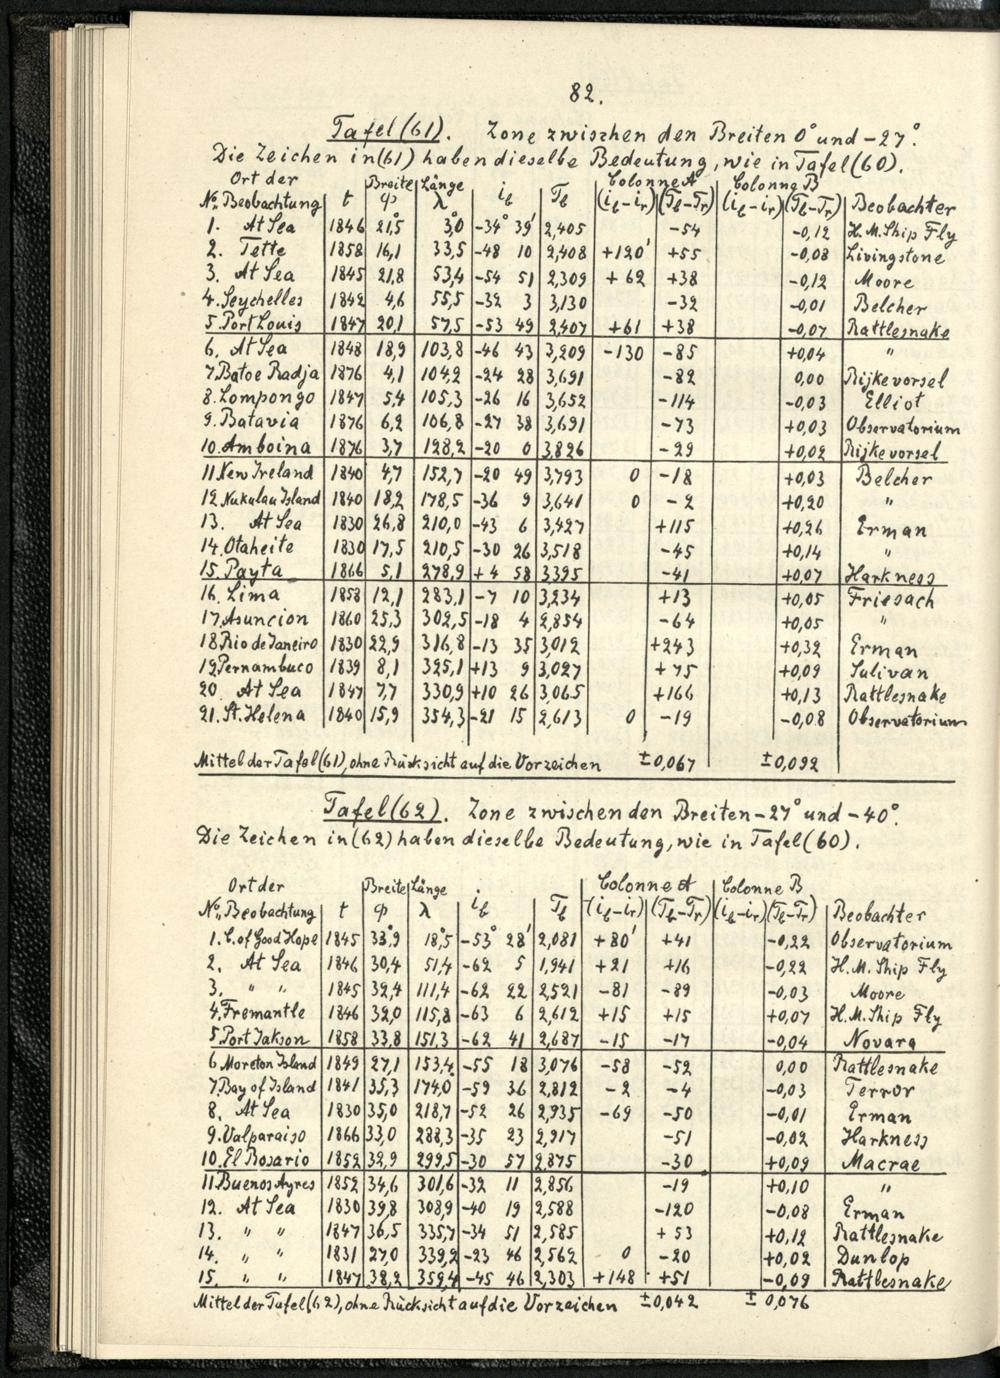 82.
Tafel (61). Zone zwischen den Breiten 0° und -27°.
Die Zeichen in (61) haben dieselbe Bedeutung, wie in Tafel (60).
Ort der Breite Länge Colonne A Colonne B
No. Beobachtung t φ λ i_b T_b (i_b-i_r) (T_b-T_r) (i_b-i_r) (T_b-T_r) Beobachter
1. At Sea 1846 21,5° 3,0° -34° 39' 2,405 -54 -0,12 H.M. Ship Fly
2. Tette 1858 16,1 33,5 -48 10 2,408 +120' +55 -0,08 Livingstone
3. At Sea 1845 21,8 53,4 -54 51 2,309 +62 +38 -0,12 Moore
4. Seychelles 1842 4,6 55,5 -32 3 3,130 -32 -0,01 Belcher
5. Port Louis 1847 20,1 57,5 -53 49 2,407 +61 +38 -0,07 Rattlesnake
6. At Sea 1848 18,9 103,8 -46 43 3,209 -130 -85 +0,04 "
7. Batoe Radja 1876 4,1 104,2 -24 28 3,691 -82 0,00 Rijkevorsel
8. Lompongo 1847 5,4 105,3 -26 16 3,652 -114 -0,03 Elliot
9. Batavia 1876 6,2 106,8 -27 38 3,691 -73 +0,03 Observatorium
10. Amboina 1876 3,7 128,2 -20 0 3,826 -29 +0,02 Rijkevorsel
11. New Ireland 1840 4,7 152,7 -20 49 3,793 0 -18 +0,03 Belcher
12. Nukulau Island 1840 18,2 178,5 -36 9 3,641 0 -2 +0,20 "
13. At Sea 1830 26,8 210,0 -43 6 3,427 +115 +0,26 Erman
14. Otaheite 1830 17,5 210,5 -30 26 3,518 -45 +0,14 "
15. Payta 1866 5,1 278,9 +4 58 3,395 -41 +0,07 Harkness
16. Lima 1858 12,1 283,1 -7 10 3,234 +13 +0,05 Friesach
17. Asuncion 1860 25,3 302,5 -18 4 2,854 -64 +0,05 "
18. Rio de Janeiro 1830 22,9 316,8 -13 35 3,012 +243 +0,32 Erman
19. Pernambuco 1839 8,1 325,1 +13 9 3,027 +75 +0,09 Sulivan
20. At Sea 1847 7,7 330,9 +10 26 3,065 +166 +0,13 Rattlesnake
21. St. Helena 1840 15,9 354,3 -21 15 2,613 0 -19 -0,08 Observatorium
Mittel der Tafel (61), ohne Rücksicht auf die Vorzeichen ±0,067 ±0,092
Tafel (62). Zone zwischen den Breiten -27° und -40°.
Die Zeichen in (62) haben dieselbe Bedeutung, wie in Tafel (60).
Ort der Breite Länge Colonne A Colonne B
No. Beobachtung t φ λ i_b T_b (i_b-i_r) (T_b-T_r) (i_b-i_r) (T_b-T_r) Beobachter
1. C. of Good Hope 1845 33,9° 18,5° -53° 28' 2,081 +80' +41 -0,22 Observatorium
2. At Sea 1846 30,4 51,4 -62 5 1,941 +21 +16 -0,22 H.M. Ship Fly
3. " " 1845 32,4 111,4 -62 22 2,521 -81 -89 -0,03 Moore
4. Fremantle 1846 32,0 115,8 -63 6 2,612 +15 +15 +0,07 H.M. Ship Fly
5. Port Jakson 1858 33,8 151,3 -62 41 2,687 -15 -17 -0,04 Novara
6. Moreton Island 1849 27,1 153,4 -55 18 3,076 -58 -52 0,00 Rattlesnake
7. Bay of Island 1841 35,3 174,0 -59 36 2,812 -2 -4 -0,03 Terror
8. At Sea 1830 35,0 218,7 -52 26 2,935 -69 -50 -0,01 Erman
9. Valparaiso 1866 33,0 288,3 -35 23 2,917 -51 -0,02 Harkness
10. El Rosario 1852 32,9 299,5 -30 57 2,875 -30 +0,09 Macrae
11. Buenos Ayres 1852 34,6 301,6 -32 11 2,856 -19 +0,10 "
12. At Sea 1830 39,8 308,9 -40 19 2,588 -120 -0,08 Erman
13. " " 1847 36,5 335,7 -34 51 2,585 +53 +0,12 Rattlesnake
14. " " 1831 27,0 339,2 -23 46 2,562 0 -20 +0,02 Dunlop
15. " " 1847 38,2 359,4 -45 46 2,303 +148 +51 -0,09 Rattlesnake
Mittel der Tafel (62), ohne Rücksicht auf die Vorzeichen ±0,042 ±0,076